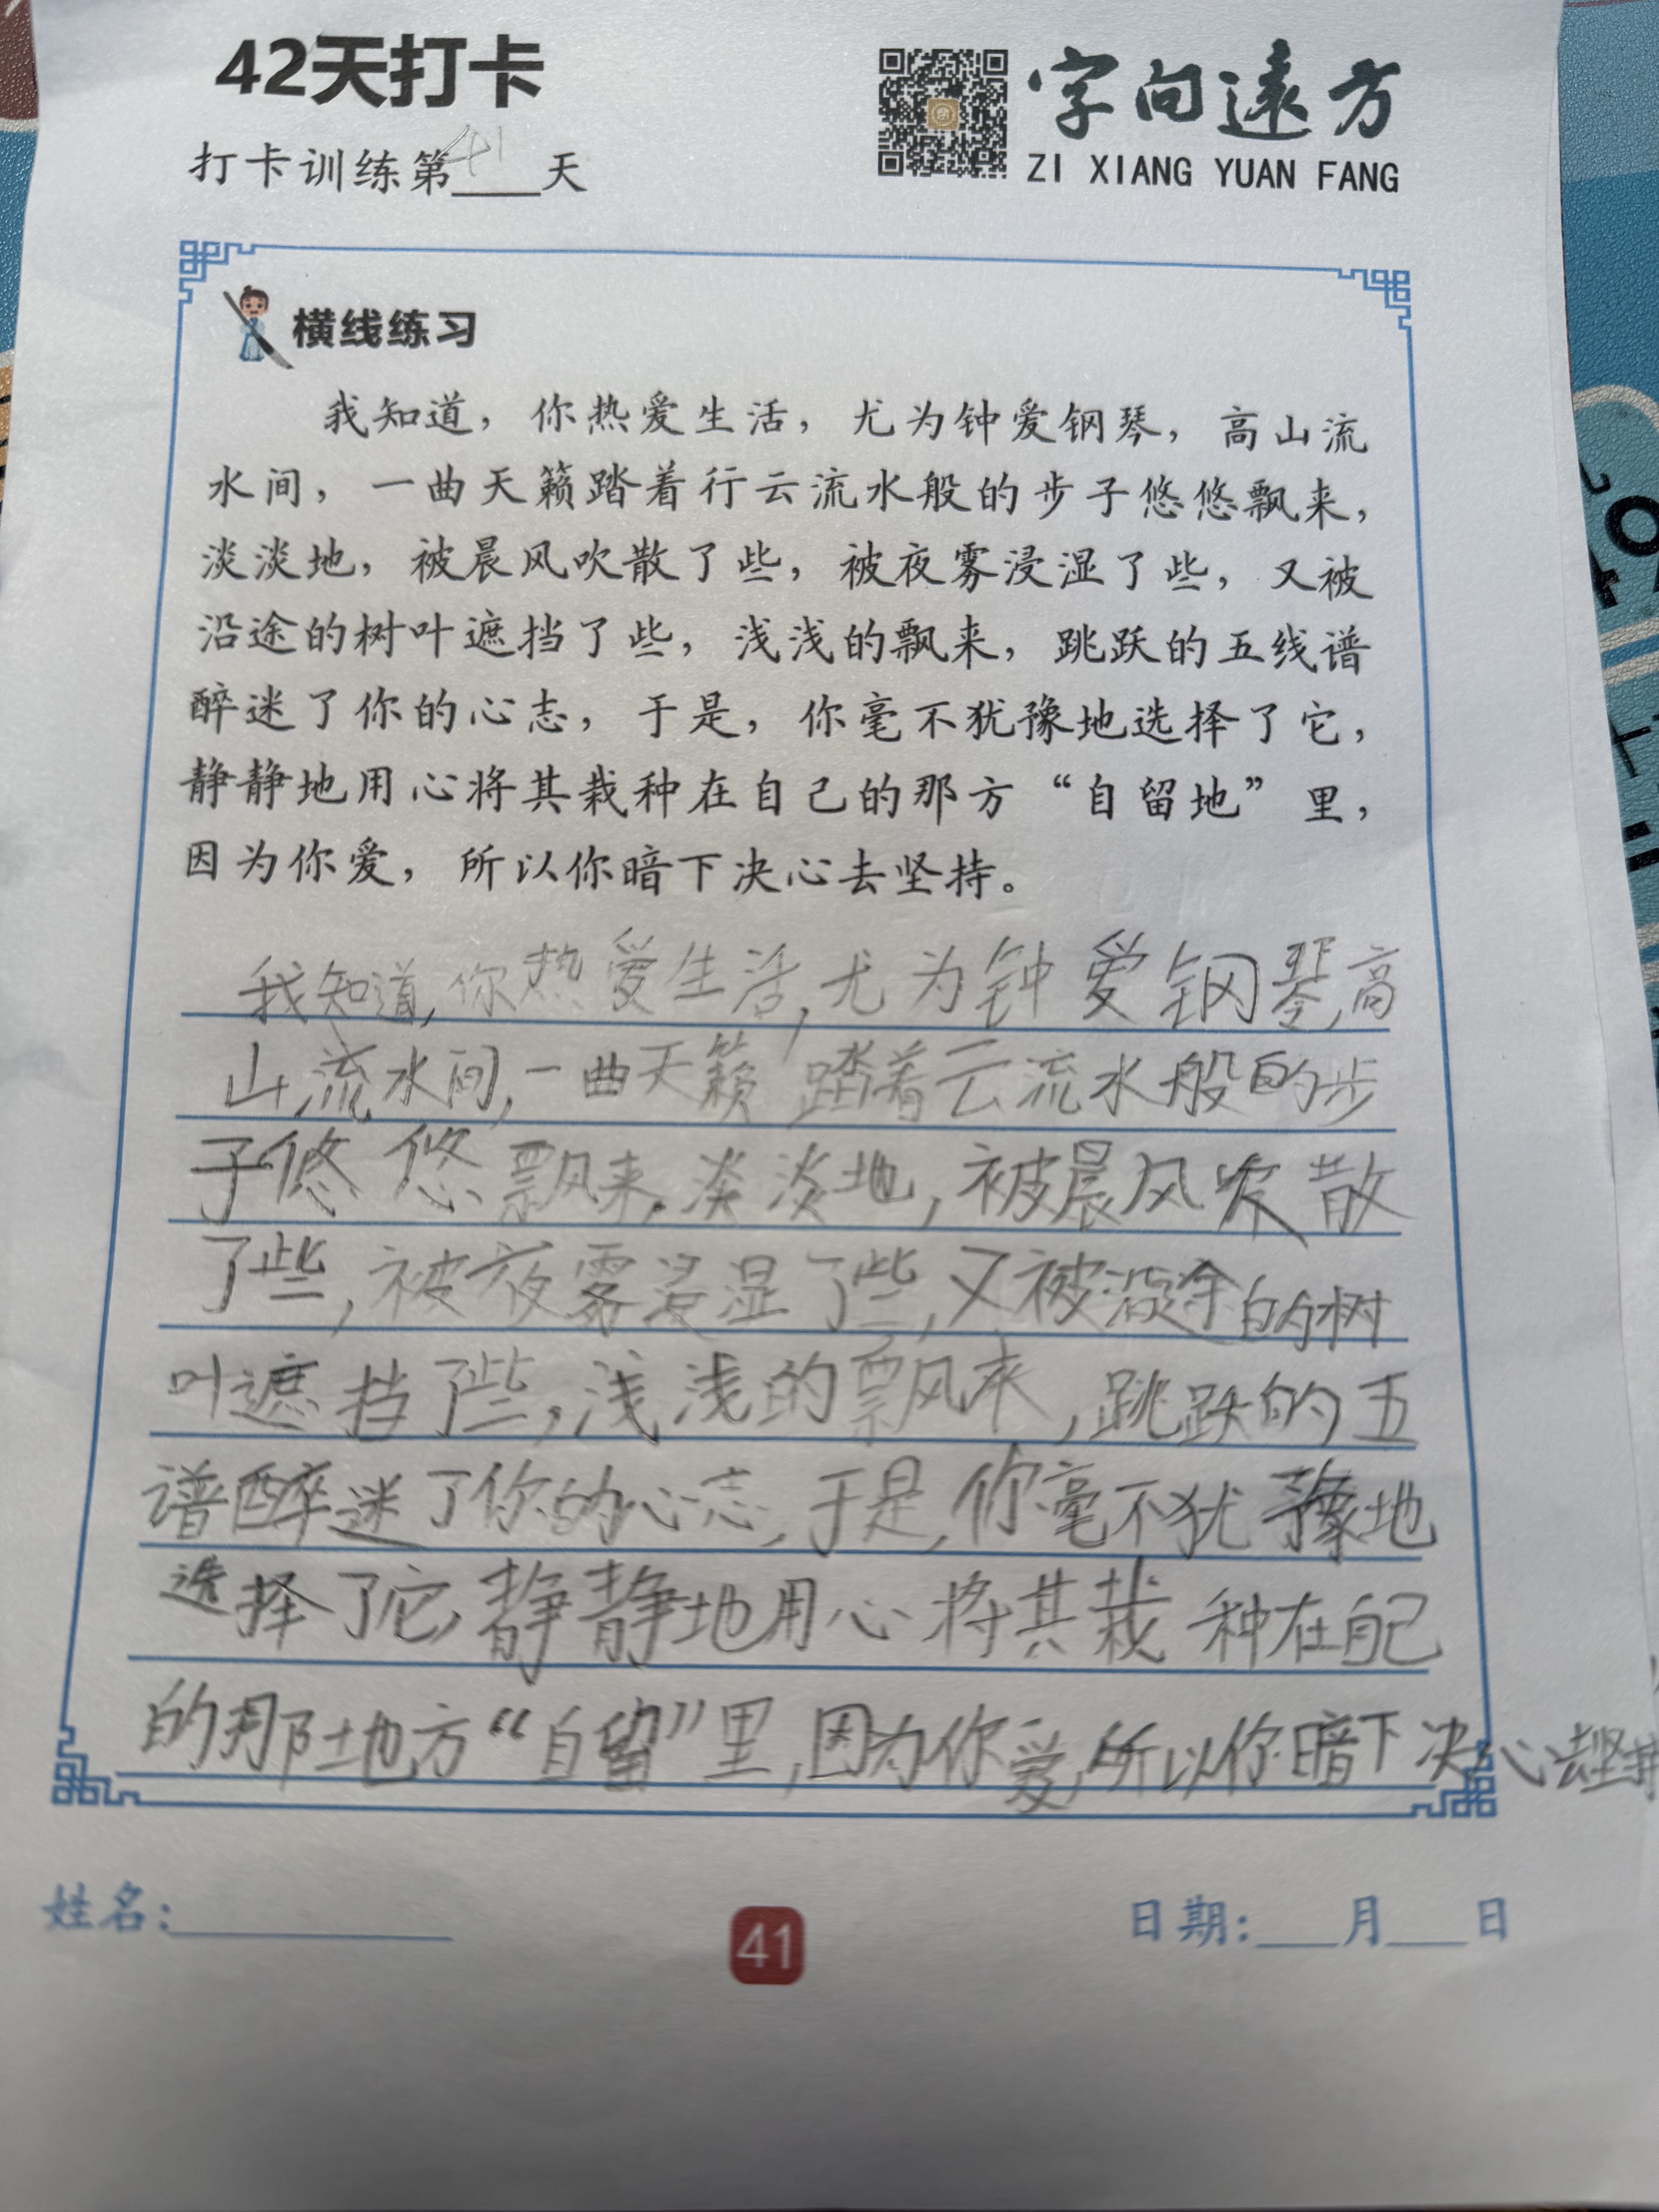 42天打卡
字向遠方
ZI XIANG YUAN FANG
打卡训练第41天
横线练习
我知道，你热爱生活，尤为钟爱钢琴，高山流
水间，一曲天籁踏着行云流水般的步子悠悠飘来，
淡淡地，被晨风吹散了些，被夜雾浸湿了些，又被
沿途的树叶遮挡了些，浅浅的飘来，跳跃的五线谱
醉迷了你的心志，于是，你毫不犹豫地选择了它，
静静地用心将其栽种在自己的那方“自留地”里，
因为你爱，所以你暗下决心去坚持。
我知道，你热爱生活，尤为钟爱钢琴，高
山流水间，一曲天籁踏着云流水般的步
子悠悠飘来，淡淡地，被晨风吹散
了些，被夜雾浸湿了些，又被沿途的树
叶遮挡了些，浅浅的飘来，跳跃的五
谱醉迷了你的心志，于是，你毫不犹豫地
选择了它，静静地用心将其栽种在自己
的那地方“自留”里，因为你爱，所以你暗下决心去坚持
姓名：
41
日期：___月___日